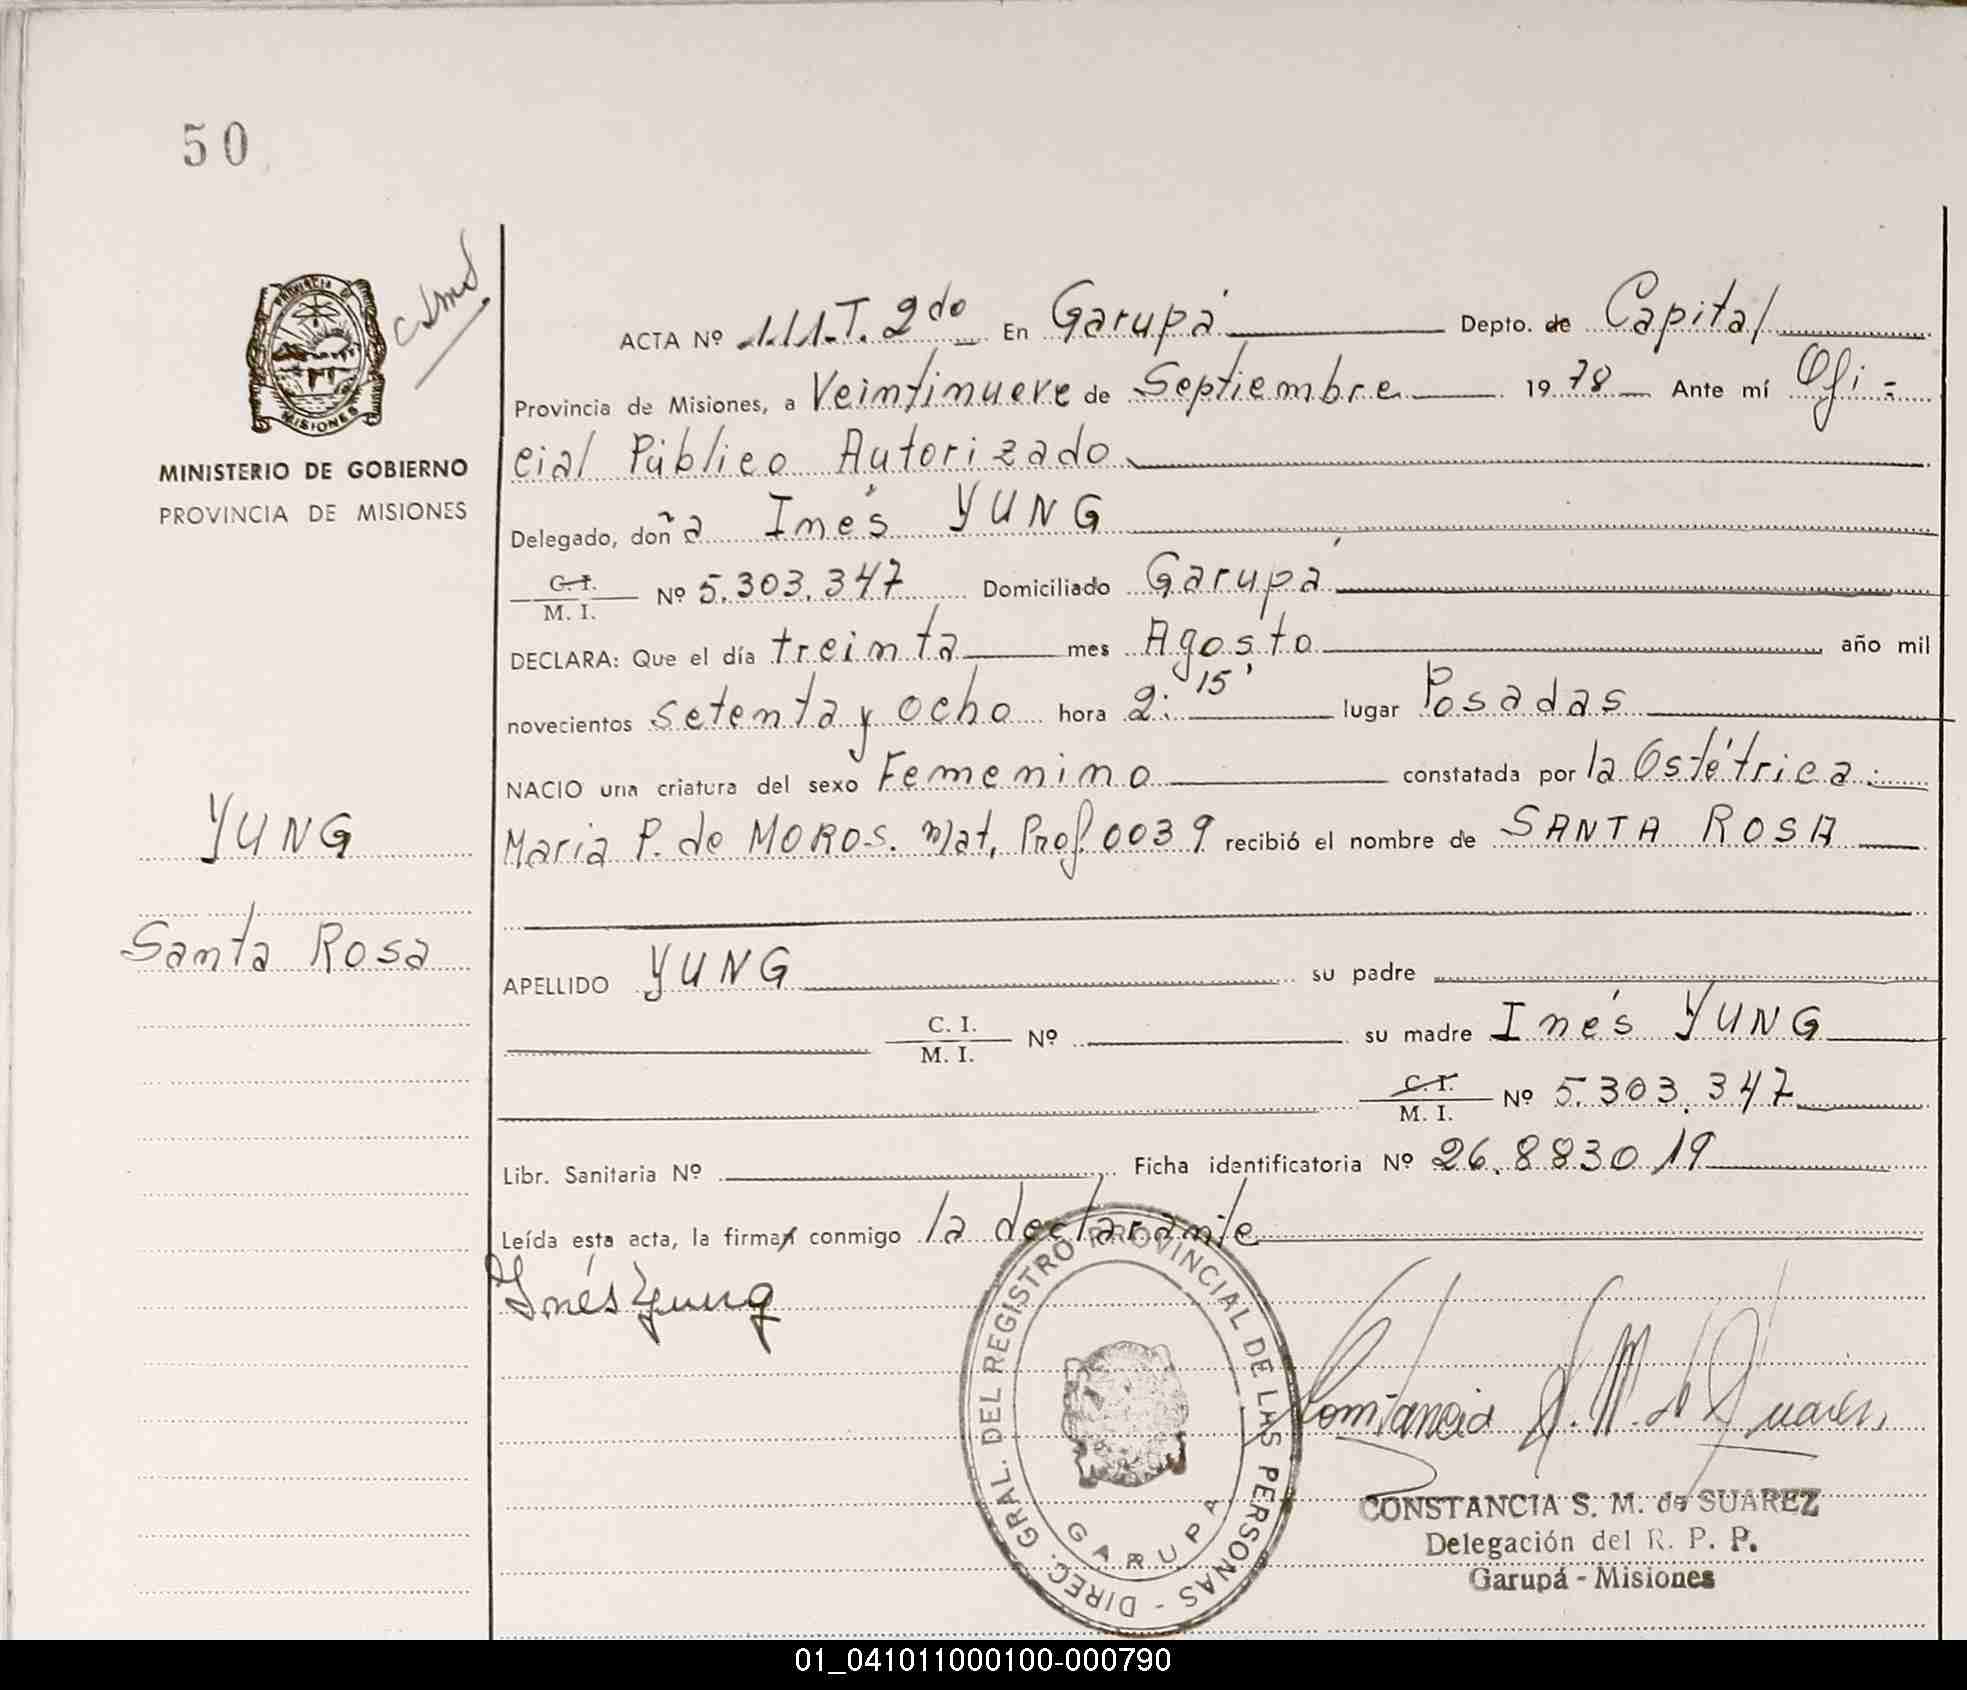 50
PROVINCIA DE
MISIONES
MINISTERIO DE GOBIERNO
PROVINCIA DE MISIONES
YUNG
Santa Rosa
ACTA Nº 111.T. 2do En Garupá Depto. de Capital
Provincia de Misiones, a Veintinueve de Septiembre 1978 Ante mí Ofi-
cial Público Autorizado
Delegado, doña Inés YUNG
C. I.
M. I. Nº 5.303.347 Domiciliado Garupá
DECLARA: Que el día treinta mes Agosto año mil
novecientos setenta y ocho hora 2:15' lugar Posadas
NACIO una criatura del sexo Femenino constatada por la Ostétrica:
Maria P. de MOROS. Mat. Prof. 0039 recibió el nombre de SANTA ROSA
APELLIDO YUNG su padre
C. I.
M. I. Nº su madre Inés YUNG
C. I.
M. I. Nº 5.303.347
Libr. Sanitaria Nº Ficha identificatoria Nº 26.883019
Leída esta acta, la firman conmigo la declarante
Inés Yung
DIREC. GRAL. DEL REGISTRO PROVINCIAL DE LAS PERSONAS -
GARUPA
Constancia S. M. de Suarez
CONSTANCIA S. M. de SUAREZ
Delegación del R. P. P.
Garupá - Misiones
01_041011000100-000790